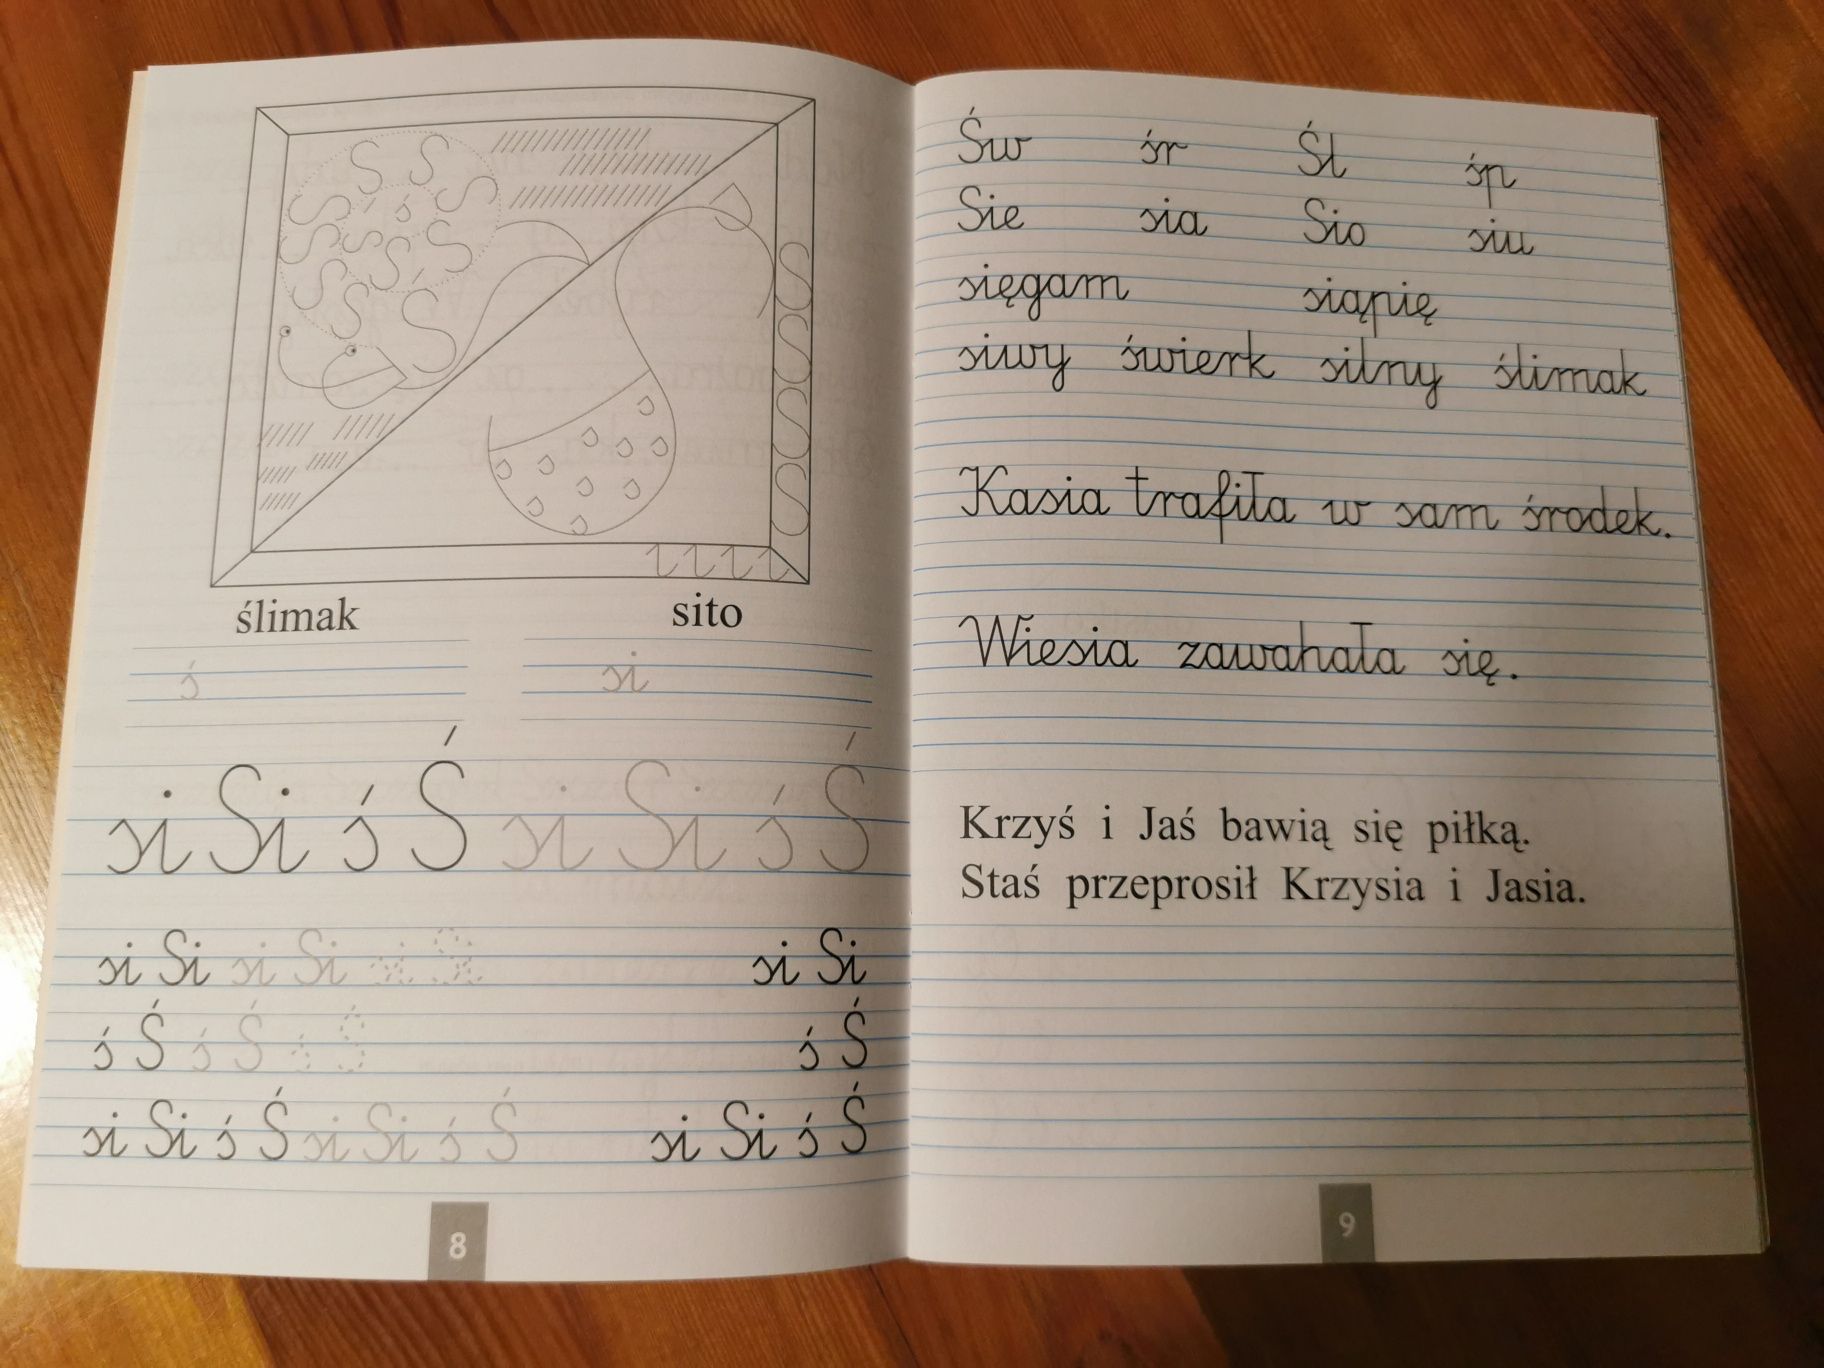 ślimak sito
ś si
si Si ś Ś si Si ś Ś
si Si si Si si Si si Si
ś Ś ś Ś ś Ś ś Ś
si Si ś Ś si Si ś Ś si Si ś Ś
8
Św śr Śl śp
Sie sia Sio siu
sięgam siąpię
siwy świerk silny ślimak
Kasia trafiła w sam środek.
Wiesia zawahała się.
Krzyś i Jaś bawią się piłką.
Staś przeprosił Krzysia i Jasia.
9